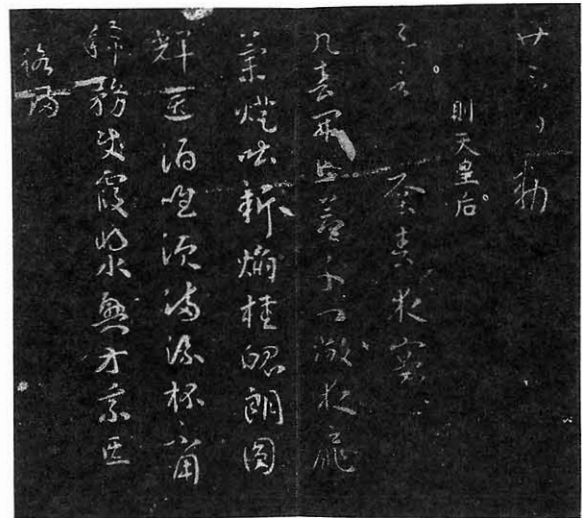 勅
則天皇后
五言 早春夜宴
九春開上節千門敞夜扉
蘭燈吐新焰桂魄朗圓
輝送酒唯須滿流杯不用
稀務使霞漿興方乘泛
洛歸